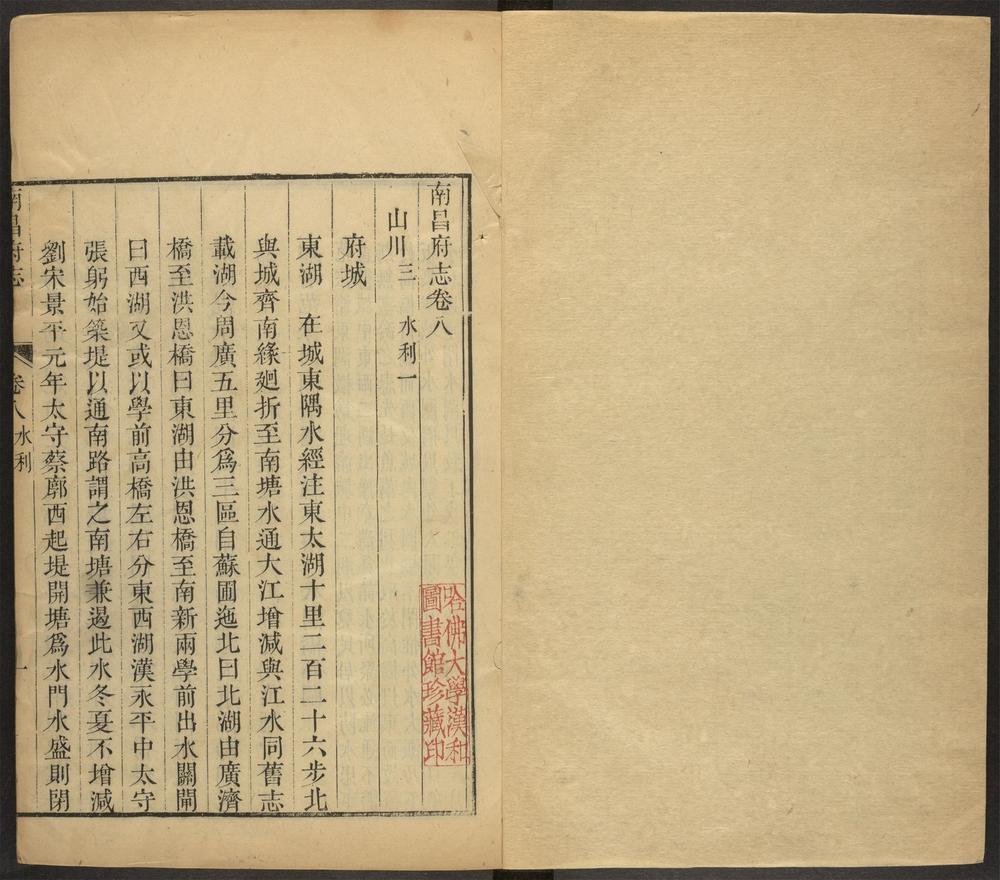 南昌府志卷八
山川三 水利一
府城
東湖 在城東隅水經注東太湖十里二百二十六步北
與城齊南緣廻折至南塘水通大江增減與江水同舊志
載湖今周廣五里分爲三區自蘇圃迤北曰北湖由廣濟
橋至洪恩橋曰東湖由洪恩橋至南新兩學前出水關閘
曰西湖又或以學前高橋左右分東西湖漢永平中太守
張躬始築堤以通南路謂之南塘兼遏此水冬夏不增減
劉宋景平元年太守蔡廓西起堤開塘爲水門水盛則閉
南昌府志 卷八 水利 一
哈佛大學漢和
圖書館珍藏印